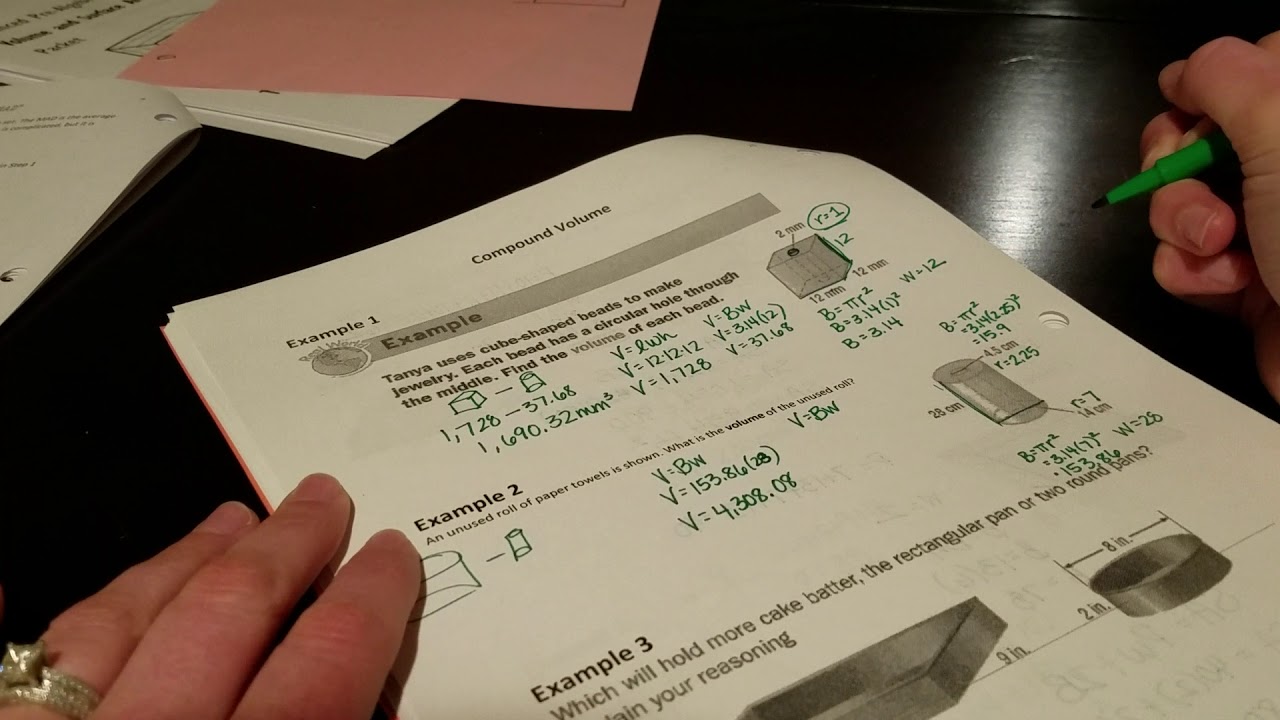 Volume and Surface A
Packet
set. The MAD is the average
is complicated, but it is
in Step 1
Compound Volume
Example 1
Example
Tanya uses cube-shaped beads to make
jewelry. Each bead has a circular hole through
the middle. Find the volume of each bead.
2 mm
r=1
12
12 mm
12 mm
W=12
B=πr²
B=3.14(1)²
B=3.14
V=lwh
V=12·12·12
V=1,728
V=BW
V=3.14(12)
V=37.68
1,728 - 37.68
1,690.32mm³
B=πr²
=3.14(2.25)²
=15.9
4.5 cm
r=2.25
28 cm
r=7
14 cm
B=πr²
=3.14(7)²
=153.86
W=28
Example 2
An unused roll of paper towels is shown. What is the volume of the unused roll?
V=BW
V=BW
V=153.86(28)
V=4,308.08
Example 3
Which will hold more cake batter, the rectangular pan or two round pans?
lain your reasoning
8 in.
2 in.
9 in.